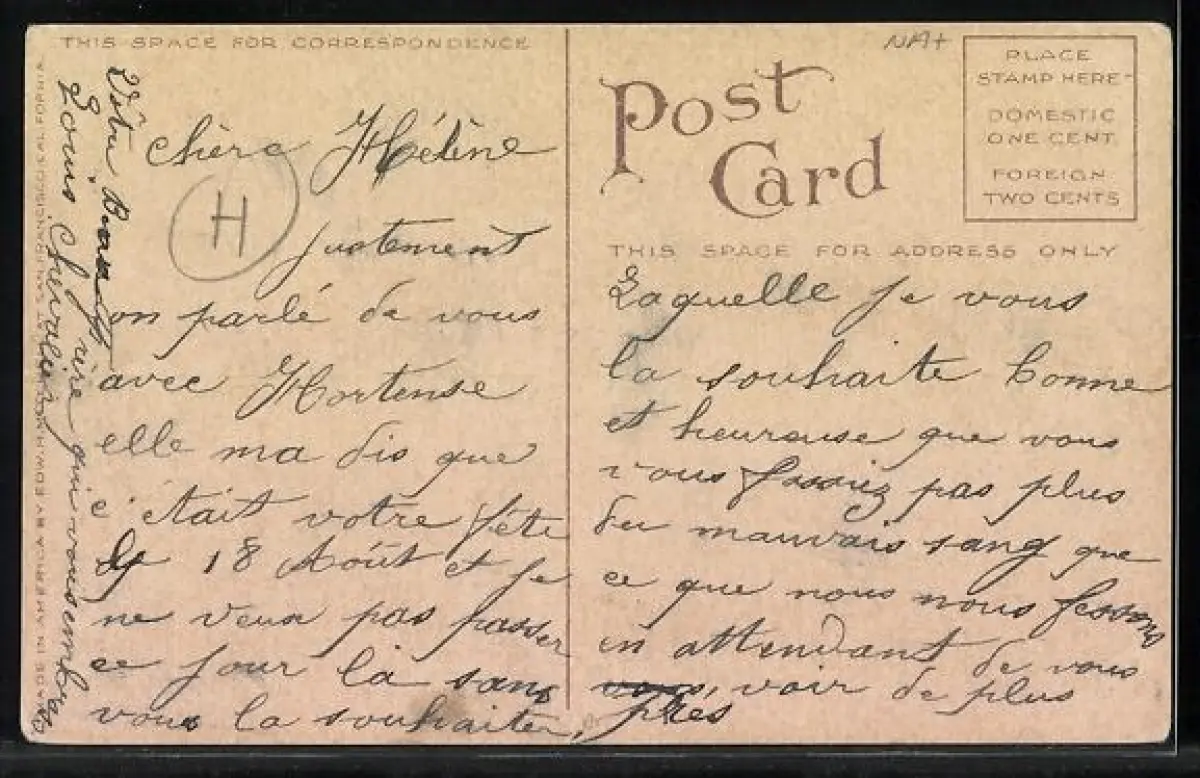 THIS SPACE FOR CORRESPONDENCE
chère Hélène
justement
on parlé de vous
avec Hortense
elle ma dis que
c'était votre fête
le 18 Août et je
ne veux pas passer
ce jour là sans
vous la souhaiter,
H
NAt
Post
Card
PLACE
STAMP HERE
DOMESTIC
ONE CENT
FOREIGN
TWO CENTS
THIS SPACE FOR ADDRESS ONLY
Laquelle je vous
la souhaite bonne
et heureuse que vous
vous fassiez pas plus
du mauvais sang que
ce que nous nous fessons
en attendant de vous
voir de plus
près
Votre
rère qui vous embras
Louis Chevalier
MADE IN AMERICA BY EDW. H. SAN FRANCISCO, CALIFORNIA